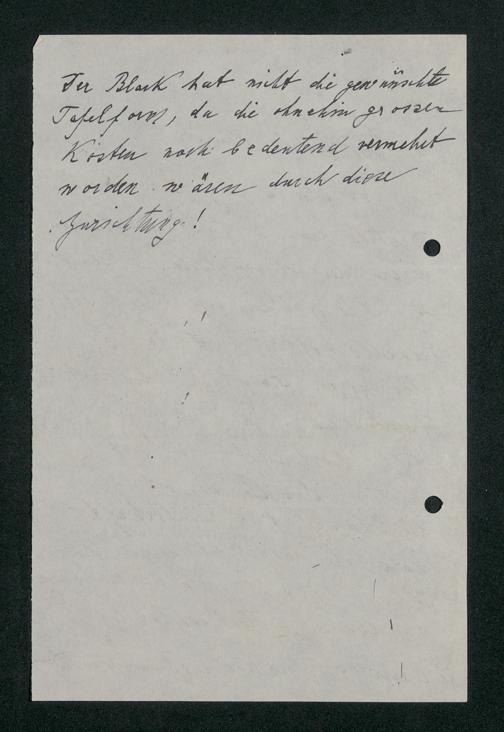 Der Block hat nicht die gewünschte
Tafelform, da die ohnehin grossen
Kosten noch bedeutend vermehrt
worden wären durch diese
Zurichtung!